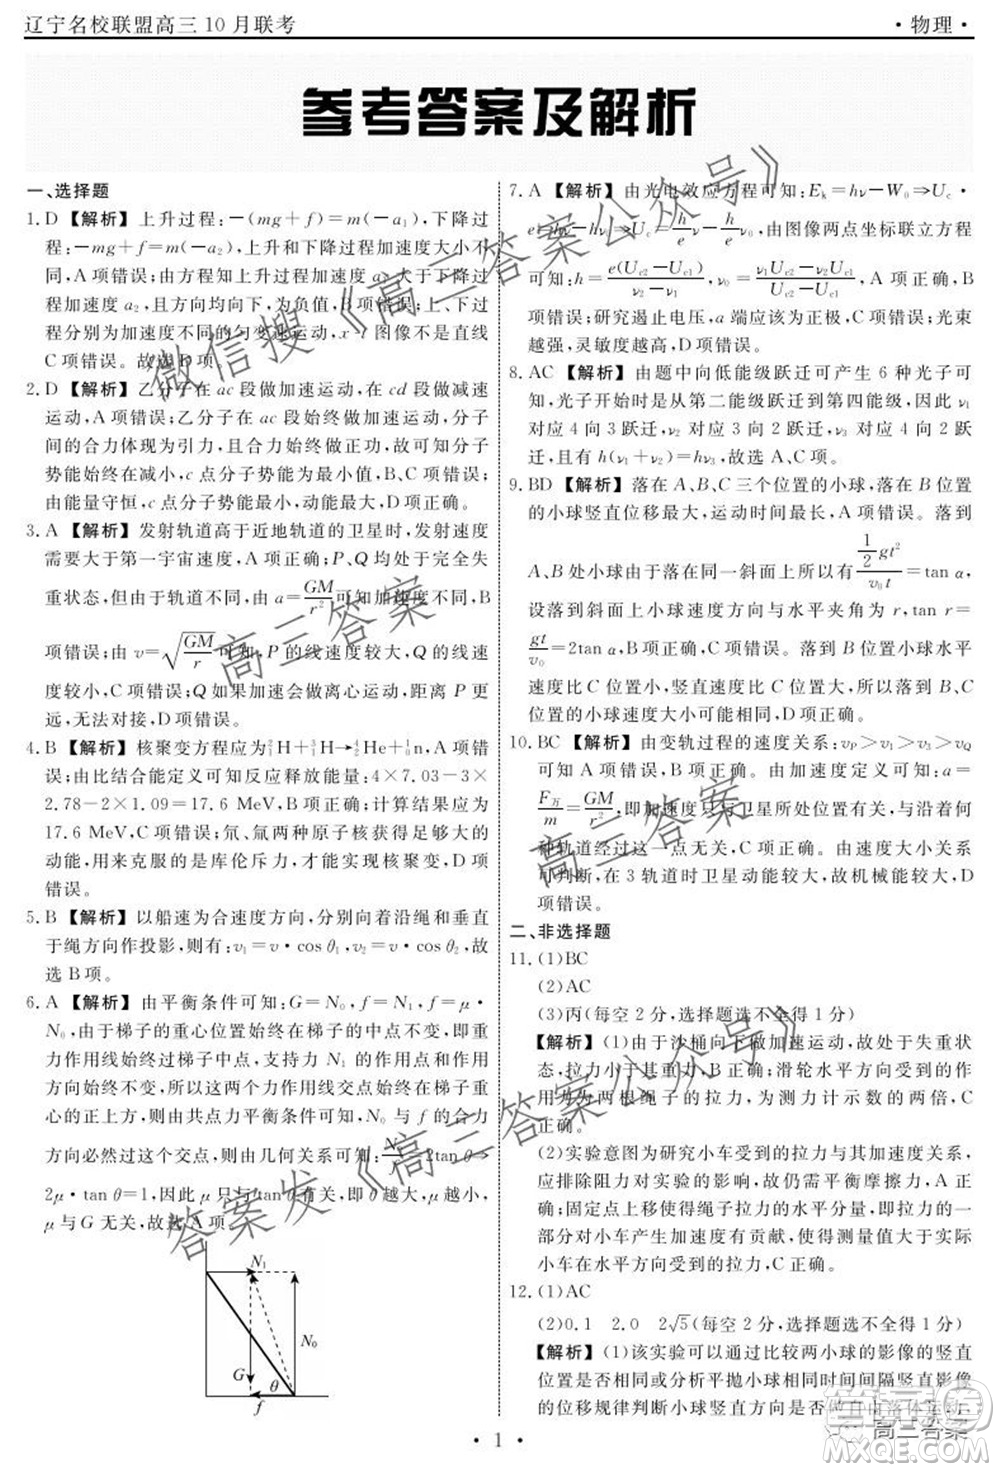 辽宁名校联盟高三10月联考
·物理·
参考答案及解析
一、选择题
1. D 【解析】上升过程:−(mg+f)=m(−a₁),下降过
程:−mg+f=m(−a₂),上升和下降过程加速度大小不
同,A项错误;由方程知上升过程加速度a₁大于下降过
程加速度a₂,且方向均向下,为负值,B项错误;上、下过
程分别为加速度不同的匀变速运动,x-t图像不是直线
C项错误。故选D项。
2. D 【解析】乙分子在ac段做加速运动,在cd段做减速
运动,A项错误;乙分子在ac段始终做加速运动,分子
间的合力体现为引力,且合力始终做正功,故可知分子
势能始终在减小,c点分子势能为最小值,B、C项错误;
由能量守恒,c点分子势能最小,动能最大,D项正确。
3. A 【解析】发射轨道高于近地轨道的卫星时,发射速度
需要大于第一宇宙速度,A项正确;P、Q均处于完全失
重状态,但由于轨道不同,由a=GM/r²可知加速度不同,B
项错误;由v=√(GM/r)可知,P的线速度较大,Q的线速
度较小,C项错误;Q如果加速会做离心运动,距离P更
远,无法对接,D项错误。
4. B 【解析】核聚变方程应为²₁H+³₁H→⁴₂He+¹₀n,A项错
误;由比结合能定义可知反应释放能量:4×7.03−3×
2.78−2×1.09=17.6 MeV,B项正确;计算结果应为
17.6 MeV,C项错误;氘、氚两种原子核获得足够大的
动能,用来克服的是库伦斥力,才能实现核聚变,D项
错误。
5. B 【解析】以船速为合速度方向,分别向着沿绳和垂直
于绳方向作投影,则有:v₁=v·cosθ₁,v₂=v·cosθ₂,故
选B项。
6. A 【解析】由平衡条件可知:G=N₀,f=N₁,f=μ·
N₀,由于梯子的重心位置始终在梯子的中点不变,即重
力作用线始终过梯子中点,支持力N₁的作用点和作用
线始终不变,所以这两个力作用线交点始终在梯子重
心的正上方,则由共点力平衡条件可知,N₀与f的合力
方向必然过这个交点,由几何关系可知:N₀/f=2tanθ⇒
2μ·tanθ=1,因此μ只与tanθ有关,即θ越大,μ越小,
μ与G无关,故选A项。
N₁
N₀
G
θ
f
7. A 【解析】由光电效应方程可知:Eₖ=hν−W₀⇒U_c·
e=hν−hν₀⇒U_c=(h/e)ν−(h/e)ν₀,由图像两点坐标联立方程
可知:h=e(U_c2−U_c1)/(ν₂−ν₁),ν₀=(ν₁U_c2−ν₂U_c1)/(U_c2−U_c1),A项正确,B
项错误;研究遏止电压,a端应为正极,C项错误;光束
越强,灵敏度越高,D项错误。
8. AC 【解析】由题中向低能级跃迁可产生6种光子可
知,光子开始时是从第二能级跃迁到第四能级,因此ν₁
对应4向3跃迁,ν₂对应3向2跃迁,ν₃对应4向2跃
迁,且有h(ν₁+ν₂)=hν₃,故选A、C项。
9. BD 【解析】落在A、B、C三个位置的小球,落在B位置
的小球竖直位移最大,运动时间最长,A项错误。落到
A、B处小球由于落在同一斜面上所以有(½gt²)/(v₀t)=tan α,
设落到斜面上小球速度方向与水平夹角为r,tan r=
gt/v₀=2tan α,所以B项正确。落到B位置小球水平
速度比C位置小,竖直速度比C位置大,所以落到B、C
位置的小球速度大小可能相同,D项正确、C项错误。
10. BC 【解析】由变轨过程的速度关系:v_P>v₁>v₃>v_Q
可知B项正确;而由加速度的决定式可知:a=
F万/m=GM/r²,即加速度只与卫星所处位置有关,与沿着何
种轨道经过这一点无关,C项正确。由速度大小关系
可判断,在3轨道时卫星动能较大,故机械能较大,D
项错误。
二、非选择题
11. (1)BC
(2)AC
(3)丙(每空2分,选择题选不全得1分)
【解析】(1)由于沙桶向下做加速运动,故处于失重状
态,拉力小于重力,A项错误,B项正确;滑轮对小车的
拉力为两根绳子的拉力,为测力计示数的两倍,C项
正确。
(2)实验意图研究小车受到的拉力和其加速度关系,
应排除阻力对实验的影响,故应平衡摩擦力,A项正
确;固定点上移使得绳子拉力的水平分量,即真实对
小车产生加速度有贡献,故使得实验测量值大于实际
小车在水平方向受到的拉力,C项正确。
12. (1)AC
(2)0.1 2.0 2√5(每空2分,选择题选不全得1分)
【解析】(1)该实验需要比较两小球的影像的竖直
位移是否相同,分析平抛小球相同时间间隔竖直影像
的位移规律判断小球竖直方向是否做自由落体运动,
· 1 ·
微信搜《高三答案公众号》
高三答案
高三答案
答案发《高三答案公众号》
答案圈
MXQE.COM
高三答案